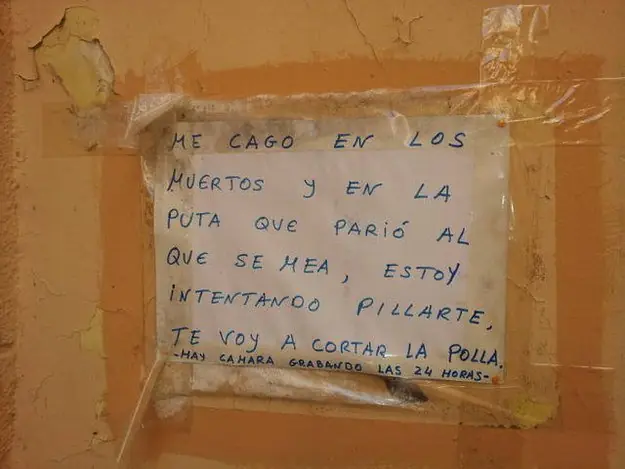 ME CAGO EN LOS
MUERTOS Y EN LA
PUTA QUE PARIÓ AL
QUE SE MEA, ESTOY
INTENTANDO PILLARTE,
TE VOY A CORTAR LA POLLA.
-HAY CAMARA GRABANDO LAS 24 HORAS-